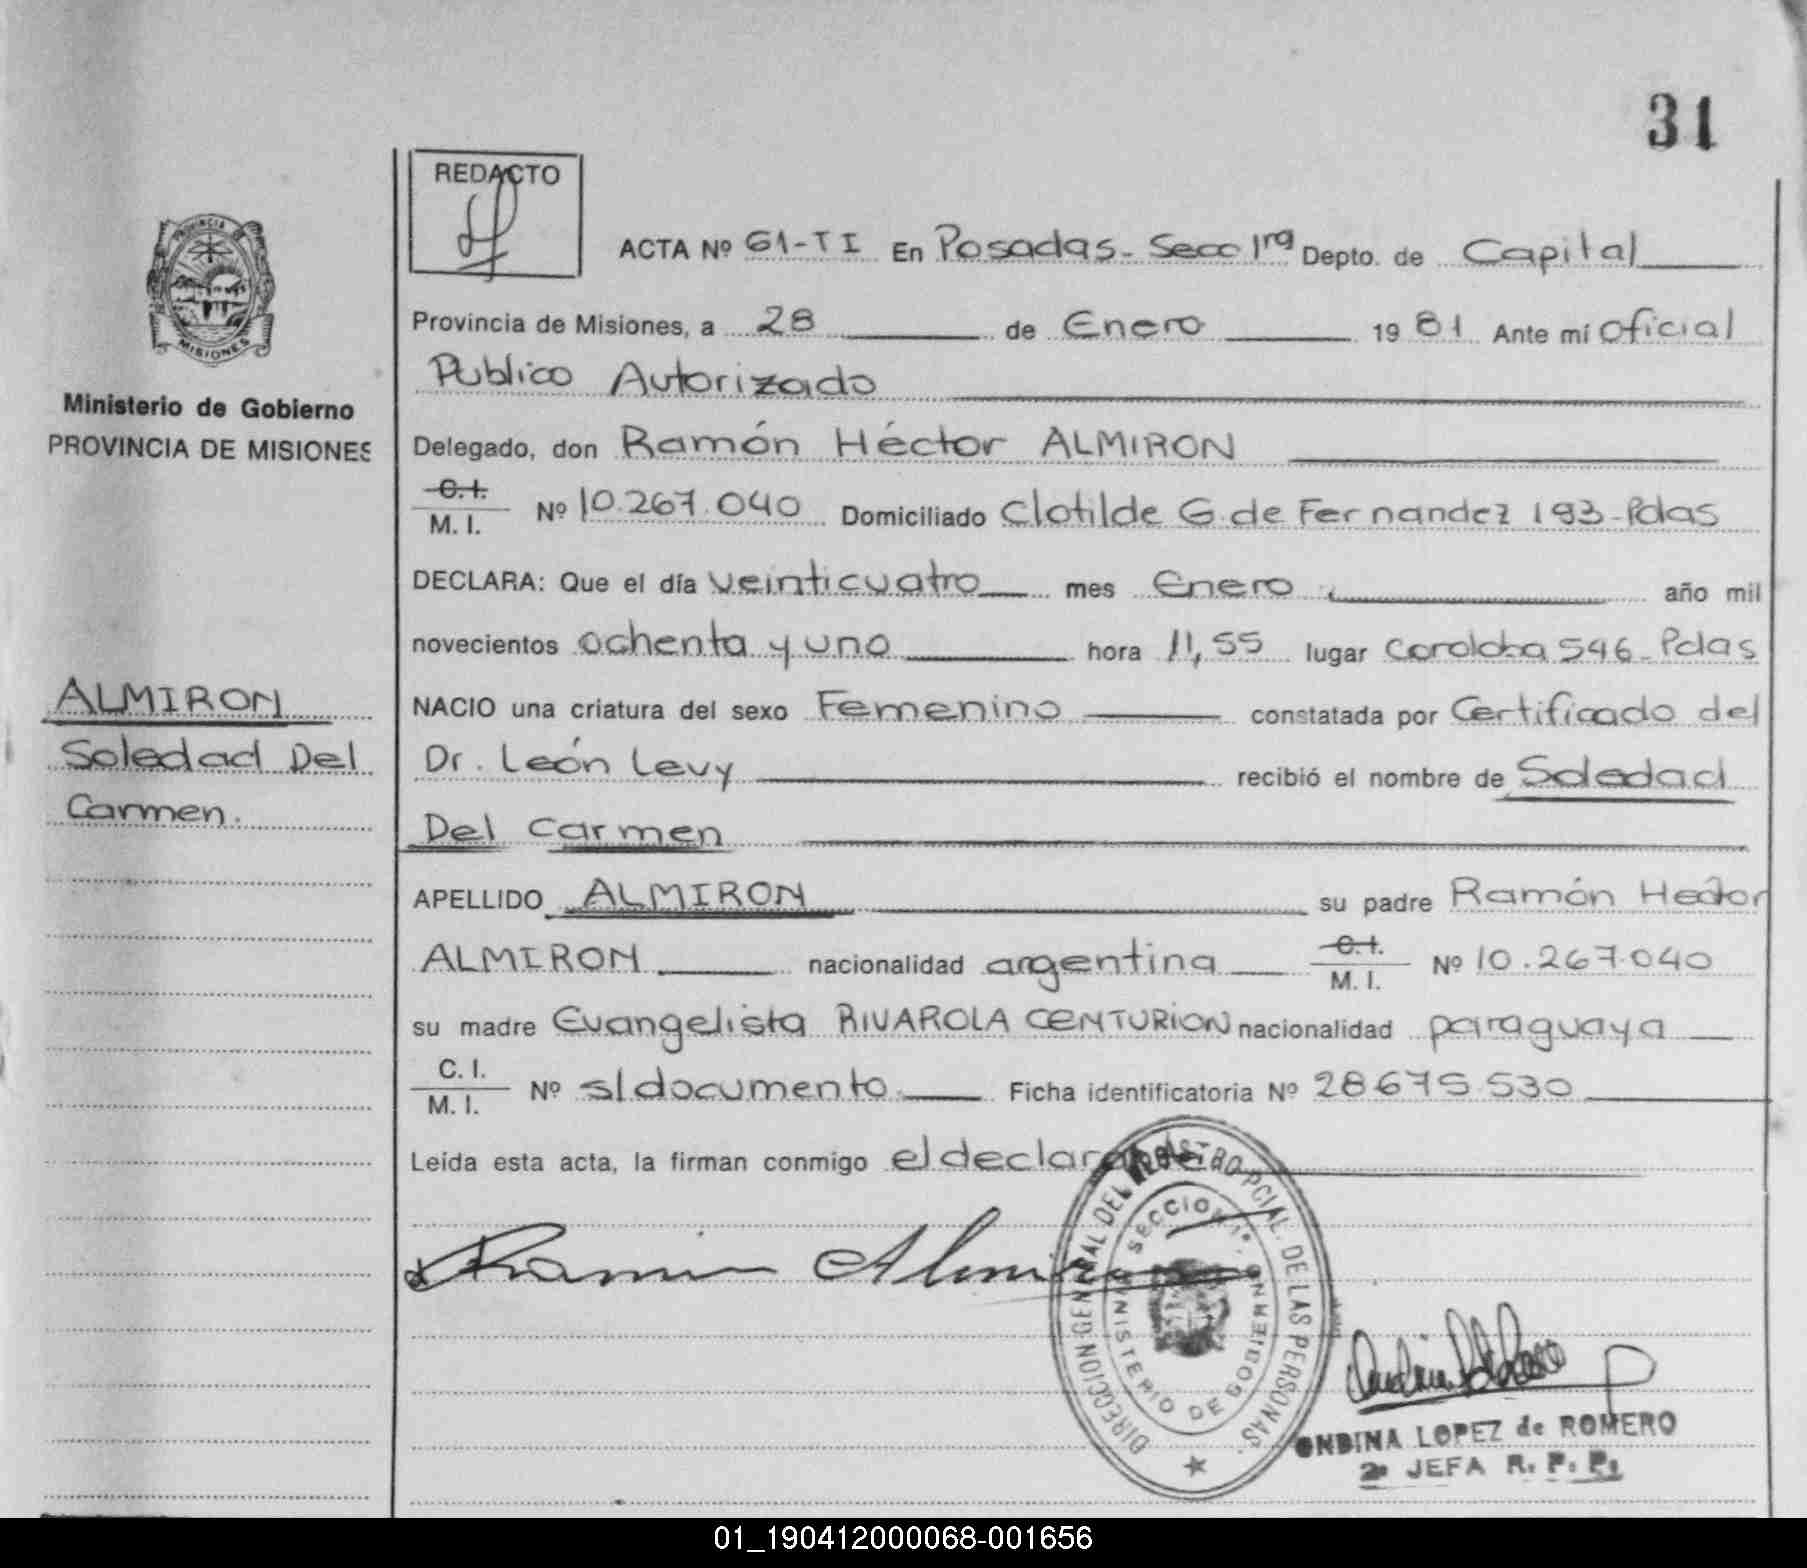 31
REDACTO
ACTA Nº 61-TI En Posadas - Secc 1ra Depto. de Capital
Provincia de Misiones, a 28 de Enero 1981 Ante mí Oficial
Publico Autorizado
Delegado, don Ramón Héctor ALMIRON
C.I. M.I. Nº 10.267.040 Domiciliado Clotilde G. de Fernandez 193-Pdas
DECLARA: Que el día veinticuatro mes Enero año mil
novecientos ochenta y uno hora 11,55 lugar Cordoba 546-Pdas
NACIO una criatura del sexo Femenino constatada por Certificado del
Dr. León Levy recibió el nombre de Soledad
Del Carmen
APELLIDO ALMIRON su padre Ramón Hector
ALMIRON nacionalidad argentina C.I. M.I. Nº 10.267.040
su madre Evangelista RIVAROLA CENTURION nacionalidad paraguaya
C.I. M.I. Nº s/documento Ficha identificatoria Nº 28.675.530
Leída esta acta, la firman conmigo el declarante
Ramon Almiron
PROVINCIA DE MISIONES
Ministerio de Gobierno
PROVINCIA DE MISIONES
ALMIRON
Soledad Del
Carmen.
DIRECCION GENERAL DEL REGISTRO PCIAL. DE LAS PERSONAS.
SECCION 1ª. MINISTERIO DE GOBIERNO
ONDINA LOPEZ de ROMERO
2ª JEFA R. P. P.
01_190412000068-001656